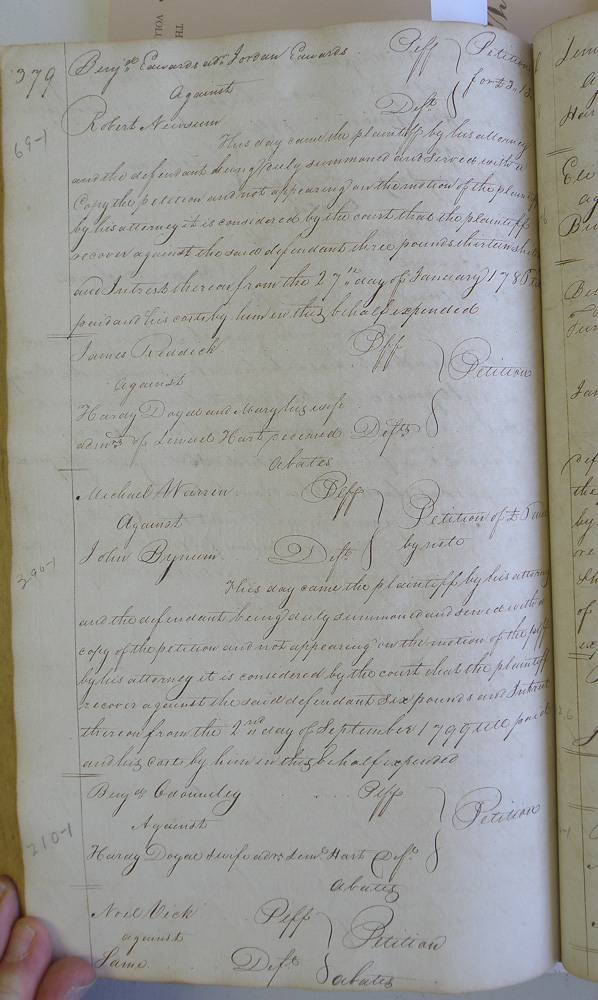 379
Benja. Edwards adr. Jordan Edwards Plff Petition
Against for £3.13
Robert Newsum Deft.
69-1
This day came the plaintiff by his attorney
and the defendant being duly summoned and served with a
Copy the petition and not appearing on the motion of the plaintiff
by his attorney it is considered by the court that the plaintiff
recover against the said defendant three pounds thirteen
and Intrest thereon from the 27th day of January
paid and his costs by him in this behalf expended
James Reddick Plff Petition
Against
Hardy Doyal and Mary his wife
admrs of Lemuel Hart deceased Defts
abates
Michael Warren Plff Petition of £
Against by note
John Bynum Deft.
200-1
This day came the plaintiff by his attorney
and the defendant being duly summoned and served with a
copy of the petition and not appearing on the motion of the plff
by his attorney it is considered by the court that the plaintiff
recover against the said defendant six pounds and Intrest
thereon from the 2nd day of September 1799 till paid
and his costs by him in this behalf expended
Plff Petition
Against
210-1
Hardy Doyal & wife adrs Leml. Hart Defts
abates
Noel Vick Plff Petition
against
Same Deft. abates